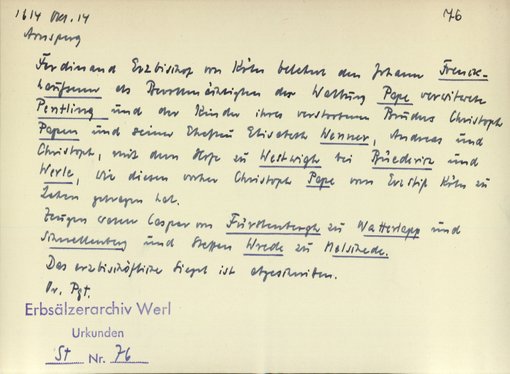 1614 Okt. 14
76
Arnsberg
Ferdinand Erzbischof von Köln belehnt den Johann Frenck-
hausen als Bevollmächtigten der Walburg Pape verwitwete
Pentling und der Kinder ihres verstorbenen Bruders Christoph
Papen und seiner Ehefrau Elisabeth Wenner, Andreas und
Christoph, mit dem Hofe zu Westwigh bei Büederich und
Werle, wie diesen vorher Christoph Pape vom Erzstift Köln zu
Lehen getragen hat.
Zeugen waren Caspar von Fürstenbergh zu Watterlapp und
Schnellenberg und Steffen Wrede zu Melschede.
Das erzbischöfliche Siegel ist abgeschnitten.
Or. Pgt.
Erbsälzerarchiv Werl
Urkunden
St Nr. 76